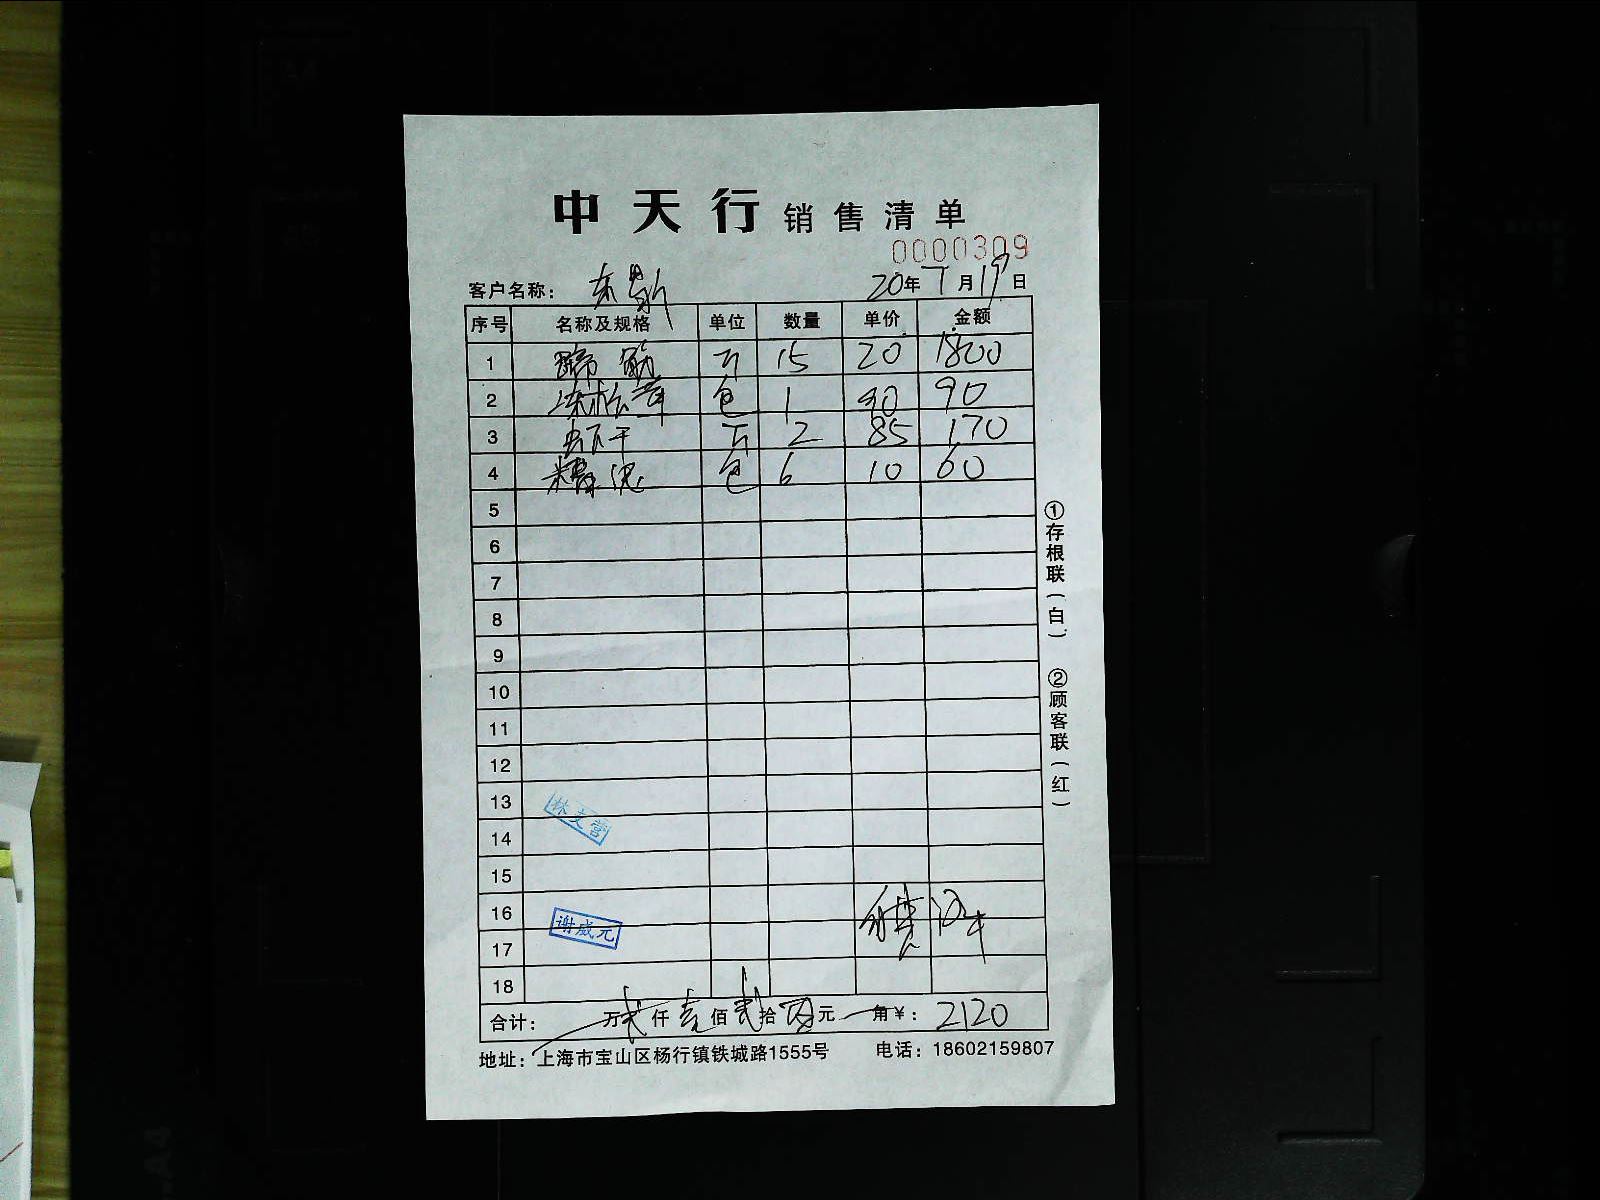 中天行 销售清单
0000309
客户名称： 20年7月19日
序号 名称及规格 单位 数量 单价 金额
1 蹄筋 斤 15 20 1800
2 包 1 90 90
3 斤 2 85 170
4 包 6 10 60
5
6
7
8
9
10
11
12
13
14
15
16
17
18
林文营
谢成元
合计： 万贰仟壹佰贰拾元角¥： 2120
地址：上海市宝山区杨行镇铁城路1555号 电话：18602159807
①存根联（白） ②顾客联（红）